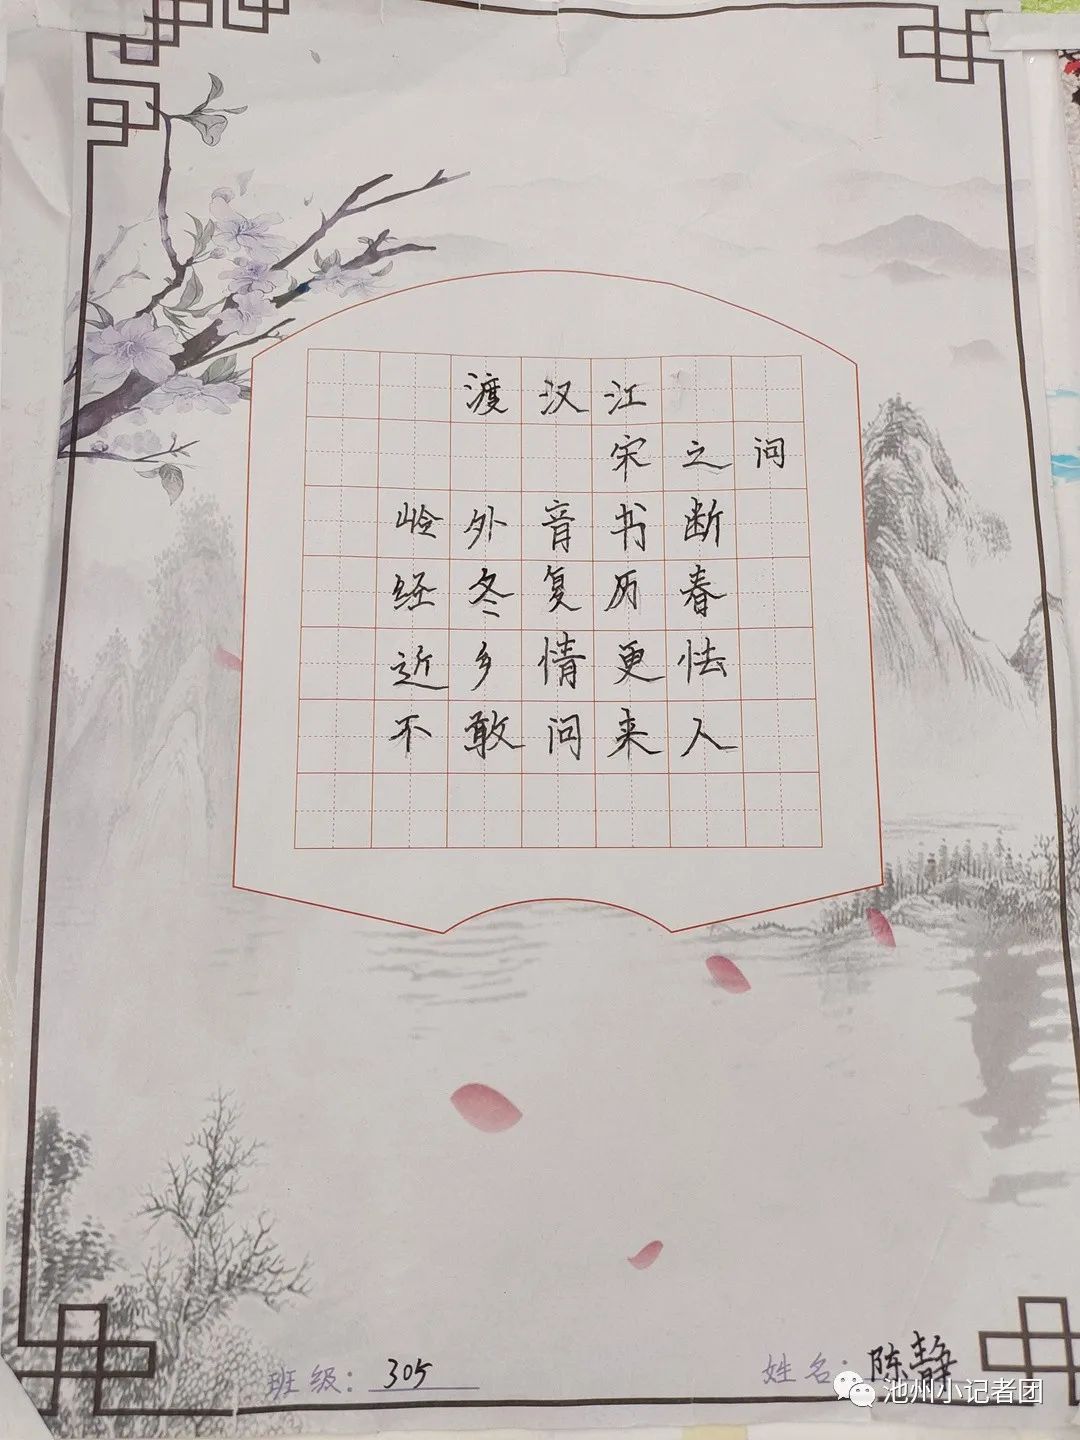 渡汉江
宋之问
岭外音书断
经冬复历春
近乡情更怯
不敢问来人
班级：305
姓名：陈静
池州小记者团